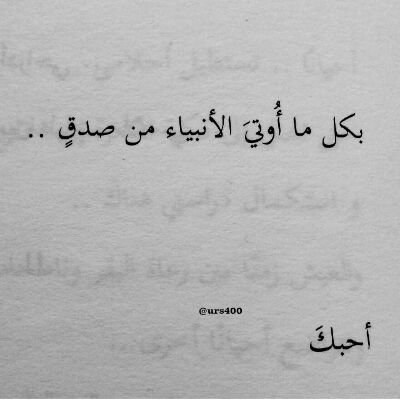 بكل ما أُوتيَ الأنبياء من صدقٍ ..
@urs400
أحبكَ